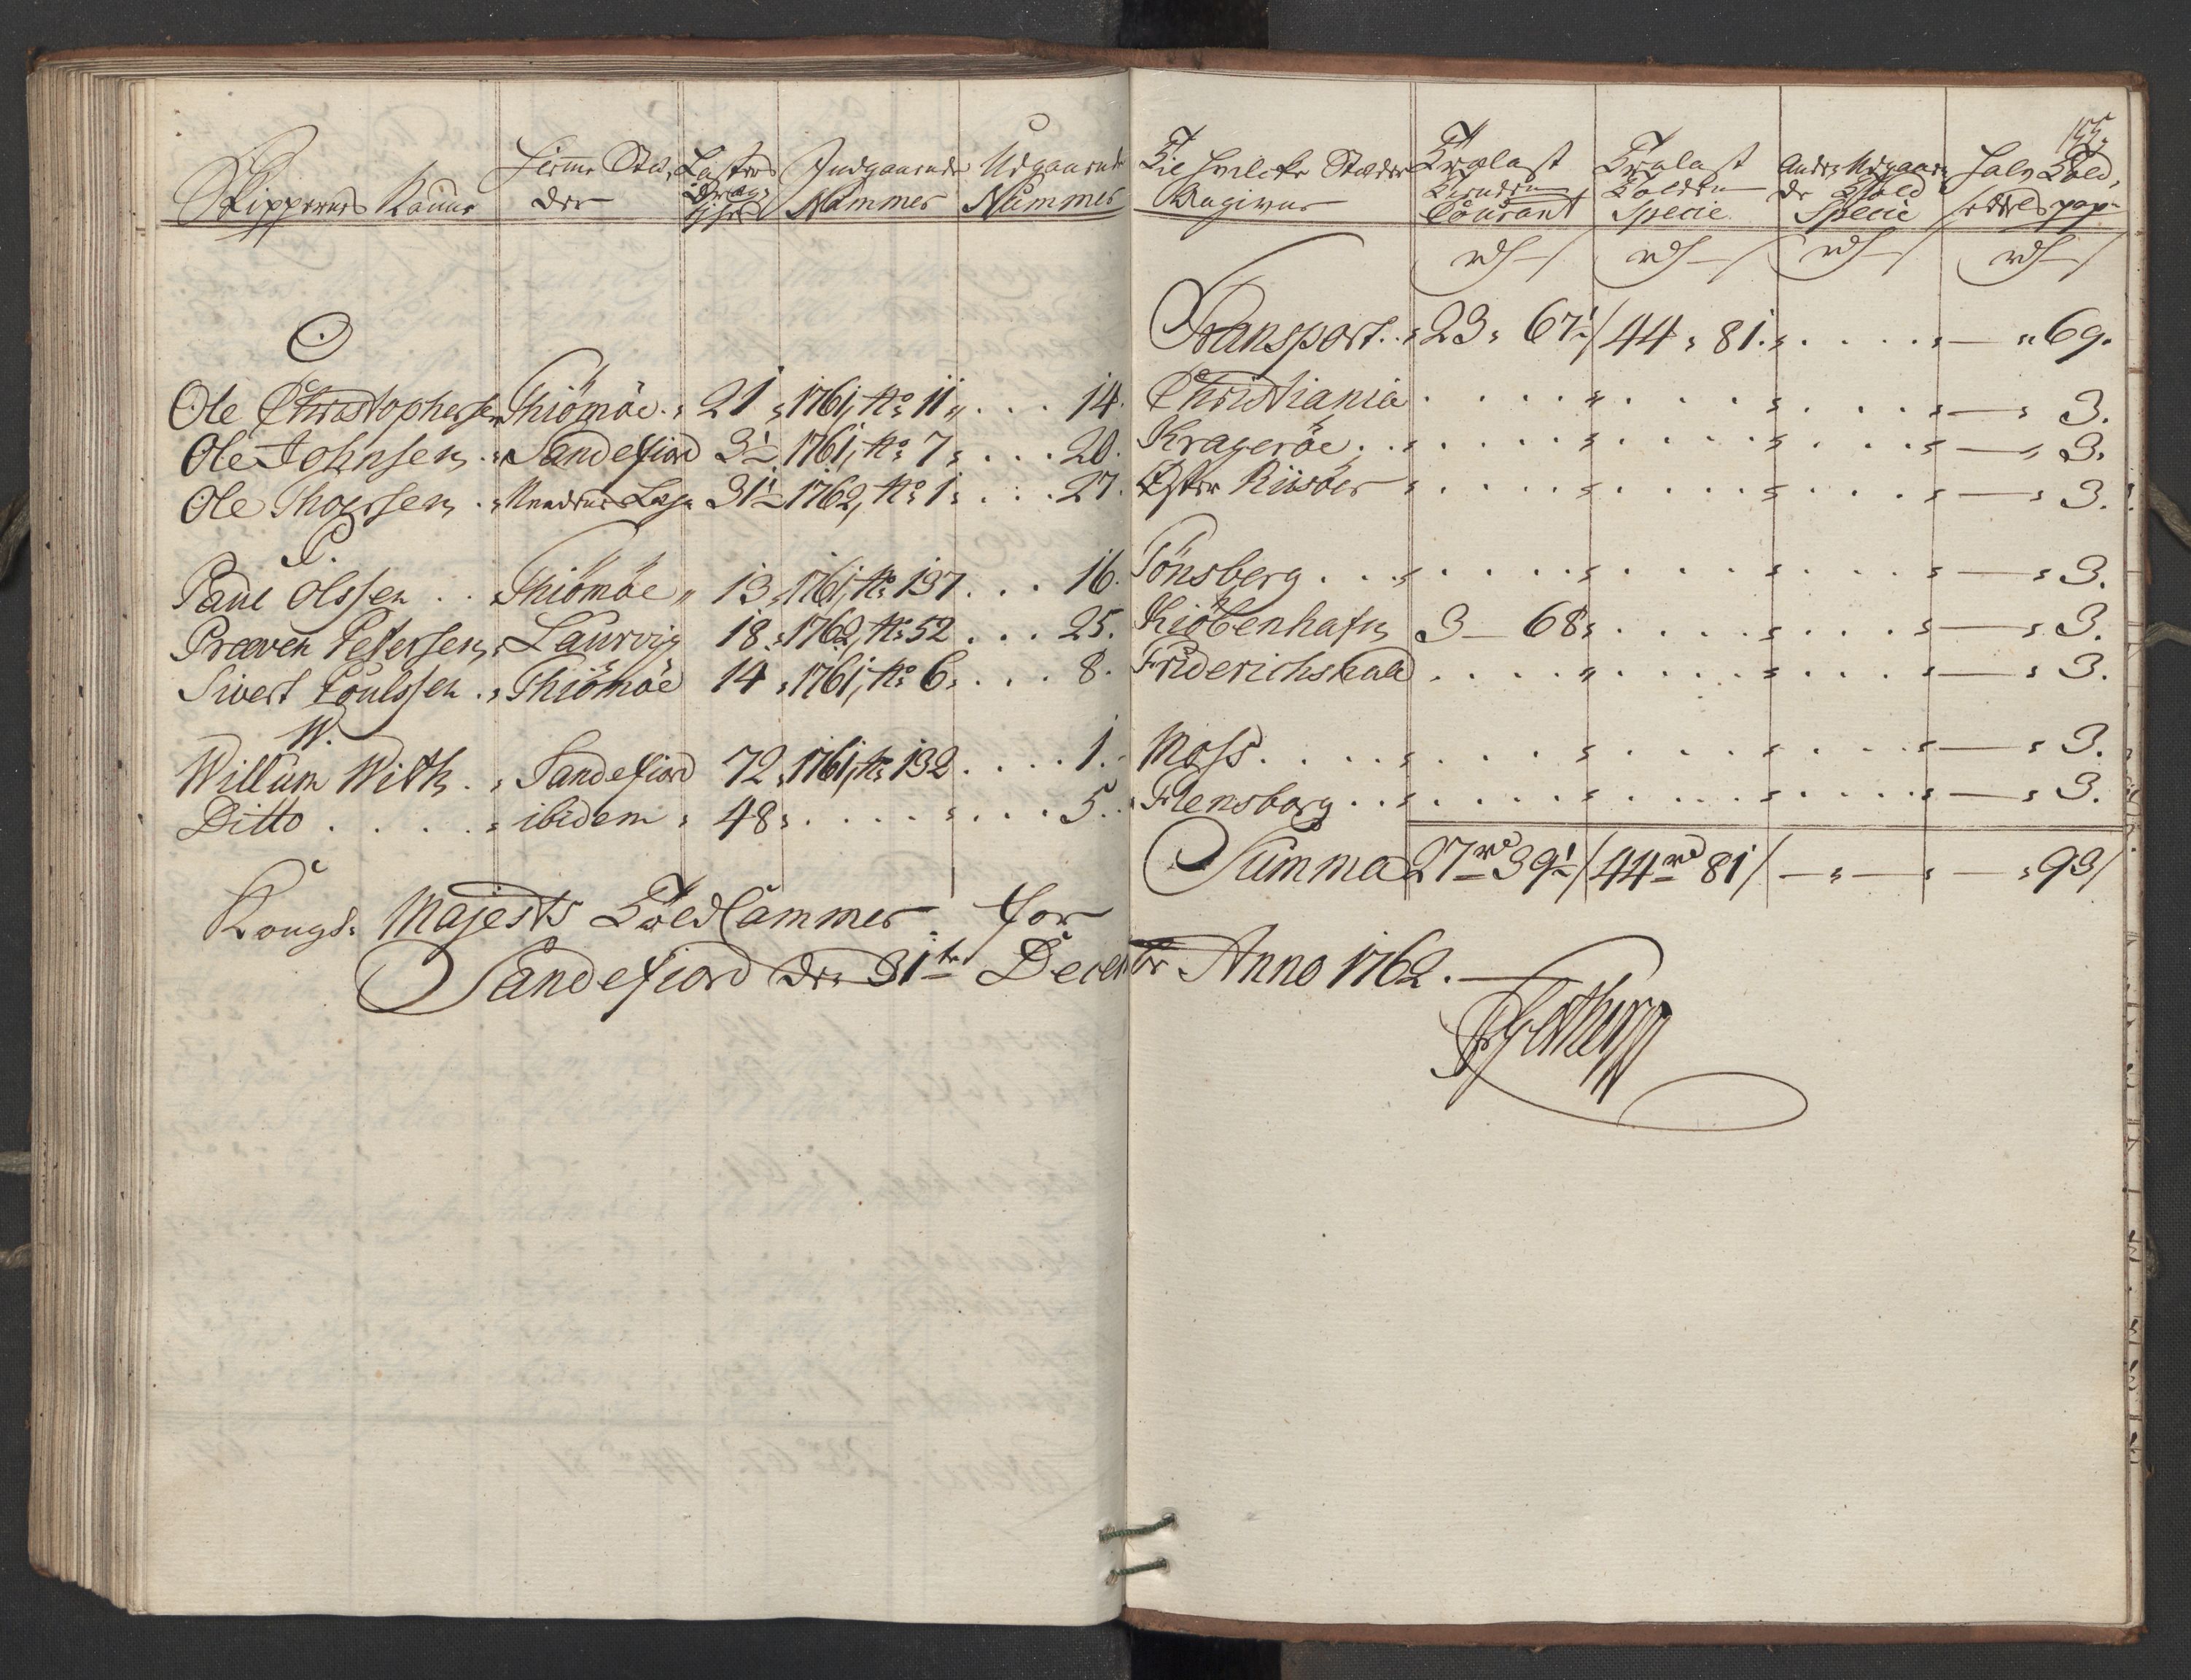 155.
Skippernes Nafne Hiemme Stæder Læsternes Drægtighed Indgaaende Nummer Udgaaende Nummer Til hvilcke Stæder Angivne Trælast Tienden Courant Trælast Tolden Specie Andre Udgaaende Told Specie Halv Told Seddel pap:
rd — s rd — s rd — s rd — s
Transport. 23 " 67½ / 44 " 81. " . . . . . " — " 69.
O
Ole Christophersen Thiömöe. " 21 " 1761, No 11 " . . . 14. Christiania . . . . " . . . . " . . . . " — " 3.
Ole Johnsen . " Sandefiord 3½ 1761, No 7 " . . . 20. Krageröe . . " . . . . " . . . . " . . . . " — " 3.
Ole Thoersen . " 31½ 1762, No 1 " . . . 27. Öster Riisöer " . . . . " . . . . " . . . . " — " 3.
P.
Paul Olssen . . Thiömöe " 13 " 1761, No 137 . . . 16. Tönsberg . . . " . . . . " . . . . " . . . . " — " 3.
Præven Petersen " Laurvig 18 " 1762, No 52 . . . 25. Kiöbenhafn 3 — 68 " . . . . " . . . . " — " 3.
Sivert Poulssen . " Thiömöe 14 " 1761, No 6 " . . . 8. Friderichshald . . . . " . . . . " . . . . " — " 3.
W.
Willum With . " Sandefiord 72 " 1761, No 132 . . . . 1. Moss . . . . . " . . . . " . . . . " . . . . " — " 3.
Ditto . . . . " ibidem " 48 " . . . . " . . . 5. Flensborg . . " . . . . " . . . . " . . . . " — " 3.
Summa 27 rd 39½ / 44 rd 81 / — " — " — " 93 /
Kongl: Majests Told Cammer for
Sandefiord den 31te Decembr Anno 1762.